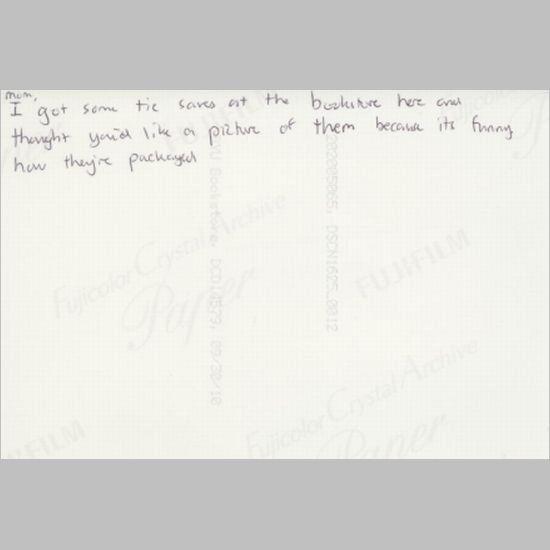 mom,
I got some tie saves at the bookstore here and
thought you'd like a picture of them because its funny
how they're packaged
Fujicolor Crystal Archive
Paper
FUJIFILM
FUJIFILM
Fujicolor Crystal Archive
Paper
FUJIFILM
U Bookstore, DCD10579, 09/20/10
DSCN1625, 0012